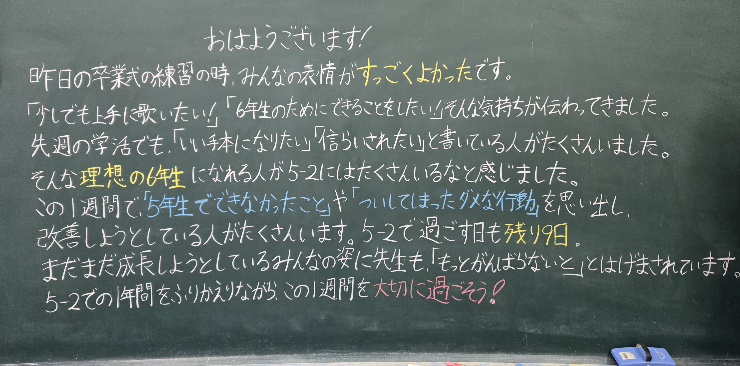 おはようございます!
昨日の卒業式の練習の時、みんなの表情がすっごくよかったです。
「少しでも上手に歌いたい!」「6年生のためにできることをしたい!」そんな気持ちが伝わってきました。
先週の学活でも、「いい手本になりたい」「信らいされたい」と書いている人がたくさんいました。
そんな理想の6年生になれる人が5-2にはたくさんいるなと感じました。
この1週間で、「5年生でできなかったこと」や「ついしてしまったダメな行動」を思い出し、
改善しようとしている人がたくさんいます。5-2で過ごす日も残り9日。
まだまだ成長しようとしているみんなの姿に先生も、「もっとがんばらないと」とはげまされています。
5-2での1年間をふりかえりながら、この1週間を大切に過ごそう!